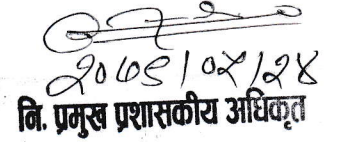 २०७९/०५/२४
नि. प्रमुख प्रशासकीय अधिकृत